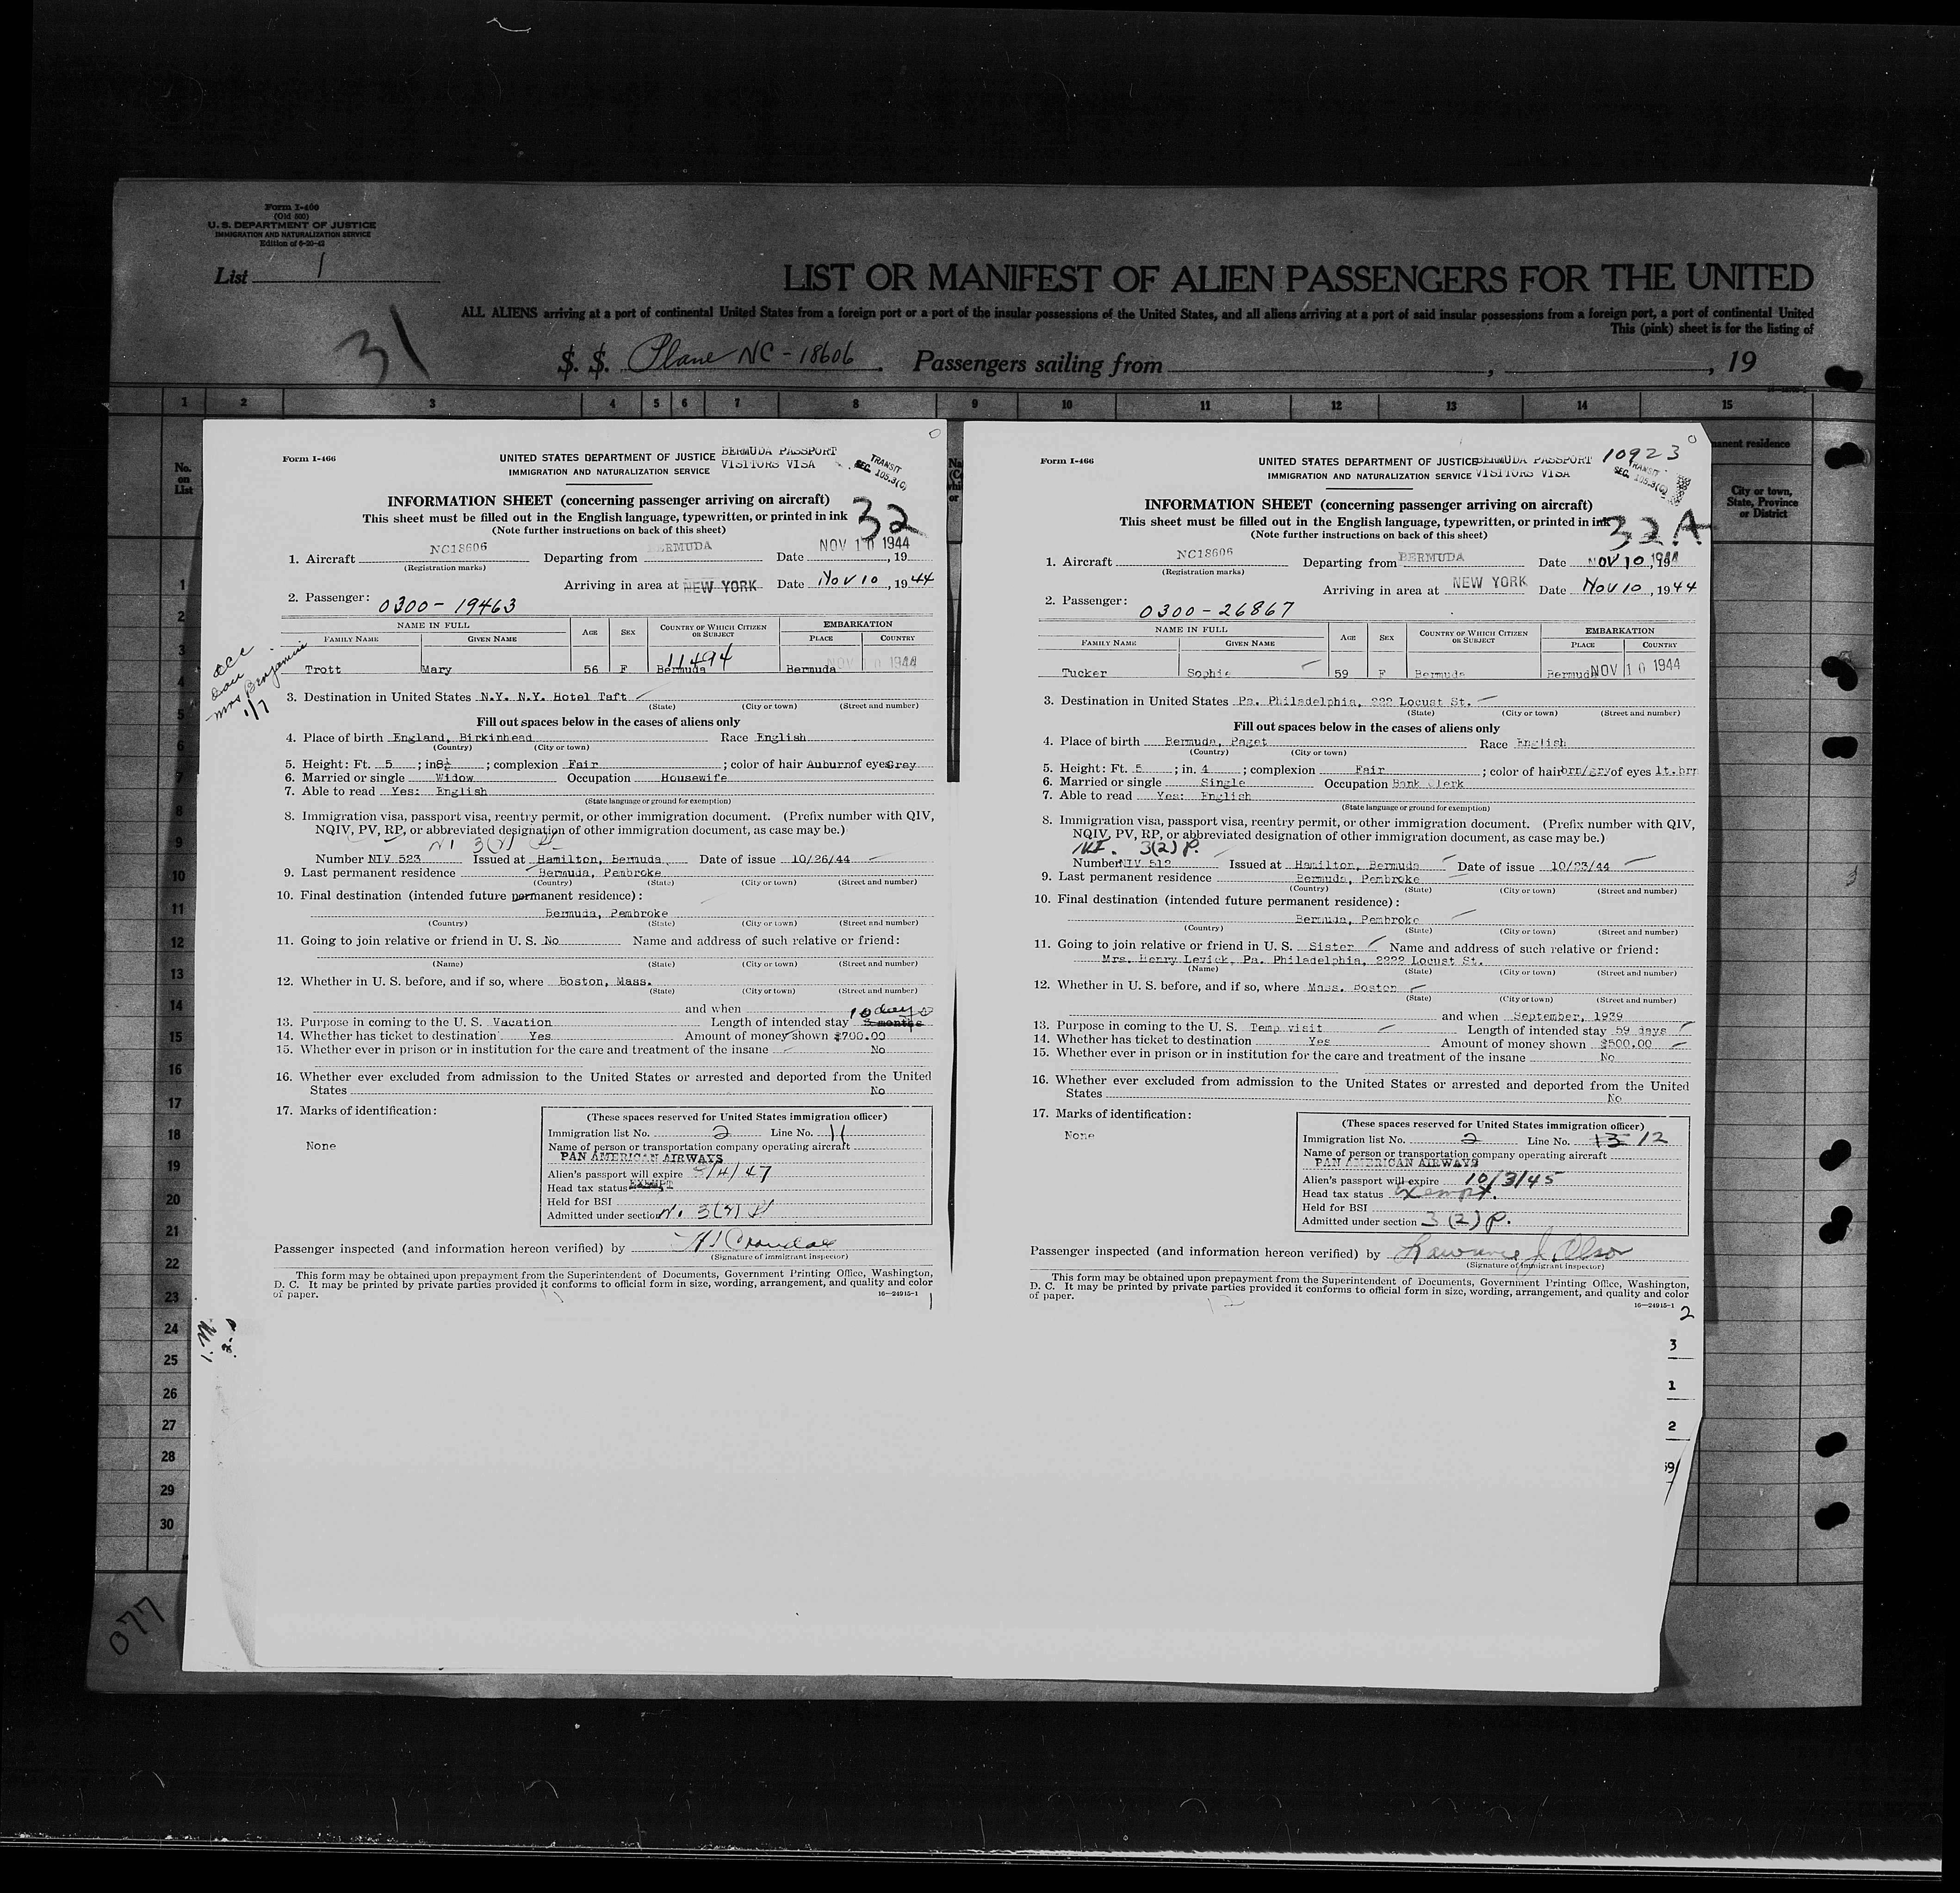 Form I-400
(Old 500)
U. S. DEPARTMENT OF JUSTICE
IMMIGRATION AND NATURALIZATION SERVICE
Edition of 6-20-42
List 1
LIST OR MANIFEST OF ALIEN PASSENGERS FOR THE UNITED
ALL ALIENS arriving at a port of continental United States from a foreign port or a port of the insular possessions of the United States, and all aliens arriving at a port of said insular possessions from a foreign port, a port of continental United
This (pink) sheet is for the listing of
31
S. S. Plane NC-18606. Passengers sailing from , , 19
1 2 3 4 5 6 7 8 9 10 11 12 13 14 15
No. on List
1
2
3
4
5
6
7
8
9
10
11
12
13
14
15
16
17
18
19
20
21
22
23
24
25
26
27
28
29
30
077
Form I-466
UNITED STATES DEPARTMENT OF JUSTICE
IMMIGRATION AND NATURALIZATION SERVICE
BERMUDA PASSPORT
VISITORS VISA
TRANSIT
SEC. 105.3(C)
INFORMATION SHEET (concerning passenger arriving on aircraft)
32
This sheet must be filled out in the English language, typewritten, or printed in ink
(Note further instructions on back of this sheet)
1. Aircraft NC18606 Departing from BERMUDA Date NOV 10 1944, 19
(Registration marks)
Arriving in area at NEW YORK Date Nov 10, 1944
2. Passenger: 0300-19463
NAME IN FULL
FAMILY NAME GIVEN NAME AGE SEX COUNTRY OF WHICH CITIZEN OR SUBJECT EMBARKATION PLACE COUNTRY
11494
Trott Mary 56 F Bermuda Bermuda NOV 10 1944
Mrs Benjamin
1/7
3. Destination in United States N.Y. N.Y. Hotel Taft
(State) (City or town) (Street and number)
Fill out spaces below in the cases of aliens only
4. Place of birth England, Birkinhead Race English
(Country) (City or town)
5. Height: Ft. 5; in 8½; complexion Fair; color of hair Auburn of eyes Grey
6. Married or single Widow Occupation Housewife
7. Able to read Yes: English
(State language or ground for exemption)
8. Immigration visa, passport visa, reentry permit, or other immigration document. (Prefix number with QIV,
NQIV, PV, RP, or abbreviated designation of other immigration document, as case may be.)
Number NIV 523 Issued at Hamilton, Bermuda Date of issue 10/26/44
9. Last permanent residence Bermuda, Pembroke
(Country) (State) (City or town) (Street and number)
10. Final destination (intended future permanent residence):
Bermuda, Pembroke
(Country) (State) (City or town) (Street and number)
11. Going to join relative or friend in U. S. No Name and address of such relative or friend:
(Name) (State) (City or town) (Street and number)
12. Whether in U. S. before, and if so, where Boston, Mass.
(State) (City or town) (Street and number)
and when
10 days
13. Purpose in coming to the U. S. Vacation Length of intended stay 3 months
14. Whether has ticket to destination Yes Amount of money shown $700.00
15. Whether ever in prison or in institution for the care and treatment of the insane No
16. Whether ever excluded from admission to the United States or arrested and deported from the United
States No
17. Marks of identification:
None
(These spaces reserved for United States immigration officer)
Immigration list No. 2 Line No. 11
Name of person or transportation company operating aircraft
PAN AMERICAN AIRWAYS
Alien's passport will expire 8/4/47
Head tax status EXEMPT
Held for BSI
Admitted under section
Passenger inspected (and information hereon verified) by
(Signature of immigrant inspector)
This form may be obtained upon prepayment from the Superintendent of Documents, Government Printing Office, Washington,
D. C. It may be printed by private parties provided it conforms to official form in size, wording, arrangement, and quality and color
of paper.
16—24915-1
1
Form I-466
UNITED STATES DEPARTMENT OF JUSTICE
IMMIGRATION AND NATURALIZATION SERVICE
BERMUDA PASSPORT
VISITORS VISA
10923
TRANSIT
SEC. 105.3(C)
INFORMATION SHEET (concerning passenger arriving on aircraft)
32A
This sheet must be filled out in the English language, typewritten, or printed in ink
(Note further instructions on back of this sheet)
1. Aircraft NC18606 Departing from BERMUDA Date NOV 10, 1944
(Registration marks)
Arriving in area at NEW YORK Date Nov 10, 1944
2. Passenger: 0300-26867
NAME IN FULL
FAMILY NAME GIVEN NAME AGE SEX COUNTRY OF WHICH CITIZEN OR SUBJECT EMBARKATION PLACE COUNTRY
Tucker Sophie 59 F Bermuda Bermuda NOV 10 1944
3. Destination in United States Pa. Philadelphia, 222 Locust St.
(State) (City or town) (Street and number)
Fill out spaces below in the cases of aliens only
4. Place of birth Bermuda, Paget Race English
(Country) (City or town)
5. Height: Ft. 5; in. 4; complexion Fair; color of hair brn/gry of eyes lt.brn
6. Married or single Single Occupation Bank Clerk
7. Able to read Yes: English
(State language or ground for exemption)
8. Immigration visa, passport visa, reentry permit, or other immigration document. (Prefix number with QIV,
NQIV, PV, RP, or abbreviated designation of other immigration document, as case may be.)
NI. 3(2) P.
Number NIV 512 Issued at Hamilton, Bermuda Date of issue 10/23/44
9. Last permanent residence Bermuda, Pembroke
(Country) (State) (City or town) (Street and number)
10. Final destination (intended future permanent residence):
Bermuda, Pembroke
(Country) (State) (City or town) (Street and number)
11. Going to join relative or friend in U. S. Sister Name and address of such relative or friend:
Mrs. Henry Levick, Pa. Philadelphia, 2222 Locust St.
(Name) (State) (City or town) (Street and number)
12. Whether in U. S. before, and if so, where Mass. Boston
(State) (City or town) (Street and number)
and when September, 1939
13. Purpose in coming to the U. S. Temp visit Length of intended stay 59 days
14. Whether has ticket to destination Yes Amount of money shown $500.00
15. Whether ever in prison or in institution for the care and treatment of the insane No
16. Whether ever excluded from admission to the United States or arrested and deported from the United
States No
17. Marks of identification:
None
(These spaces reserved for United States immigration officer)
Immigration list No. 2 Line No. 13 12
Name of person or transportation company operating aircraft
PAN AMERICAN AIRWAYS
Alien's passport will expire 10/3/45
Head tax status Exempt.
Held for BSI
Admitted under section 3 (2) P.
Passenger inspected (and information hereon verified) by
(Signature of immigrant inspector)
This form may be obtained upon prepayment from the Superintendent of Documents, Government Printing Office, Washington,
D. C. It may be printed by private parties provided it conforms to official form in size, wording, arrangement, and quality and color
of paper.
16—24915-1
2
3
1
2
manent residence
City or town,
State, Province
or District